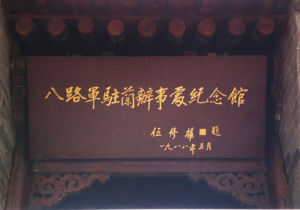 八路軍駐蘭辦事處紀念館
伍修權題
一九八八年五月